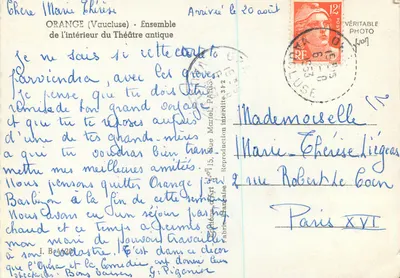 Chère Marie Thérèse
Arrivée le 20 août
ORANGE (Vaucluse) - Ensemble
de l'intérieur du Théâtre antique
VÉRITABLE
PHOTO
12F
RF
Je ne sais si cette carte
parviendra, avec ces grèves
Je pense que tu dois être
remise de ton grand voyage
et que tu te reposes auprès
d'une de tes grands-mères
a que tu voudras bien trans-
mettre mes meilleures amitiés.
Nous pensons quitter Orange pour
Barbizon à la fin de cette semaine
Nous avons eu un séjour pas trop
chaud et ce temps a permis à
mon mari de pouvoir travailler
à son cadastre. C'est dans ce décor
que l'Opéra et la Comédie ont donné leur
Bons baisers G. Piganiol
Mademoiselle
Marie-Thérèse Liégeas
2 rue Robert Le Coin
Paris XVI